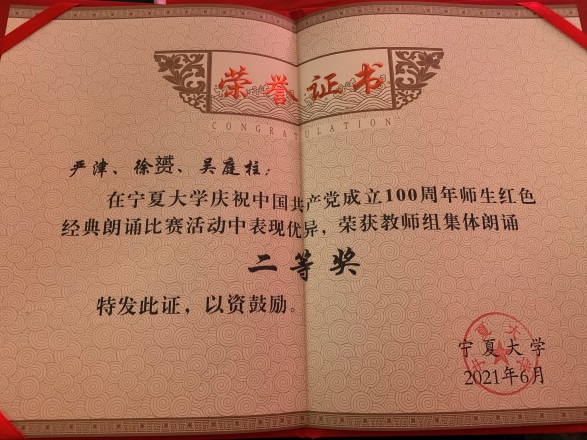 荣誉证书
CONGRATULATION
严津、徐赟、吴庭柱：
在宁夏大学庆祝中国共产党成立100周年师生红色
经典朗诵比赛活动中表现优异，荣获教师组集体朗诵
二等奖
特发此证，以资鼓励。
宁夏大学
宁夏大学
2021年6月